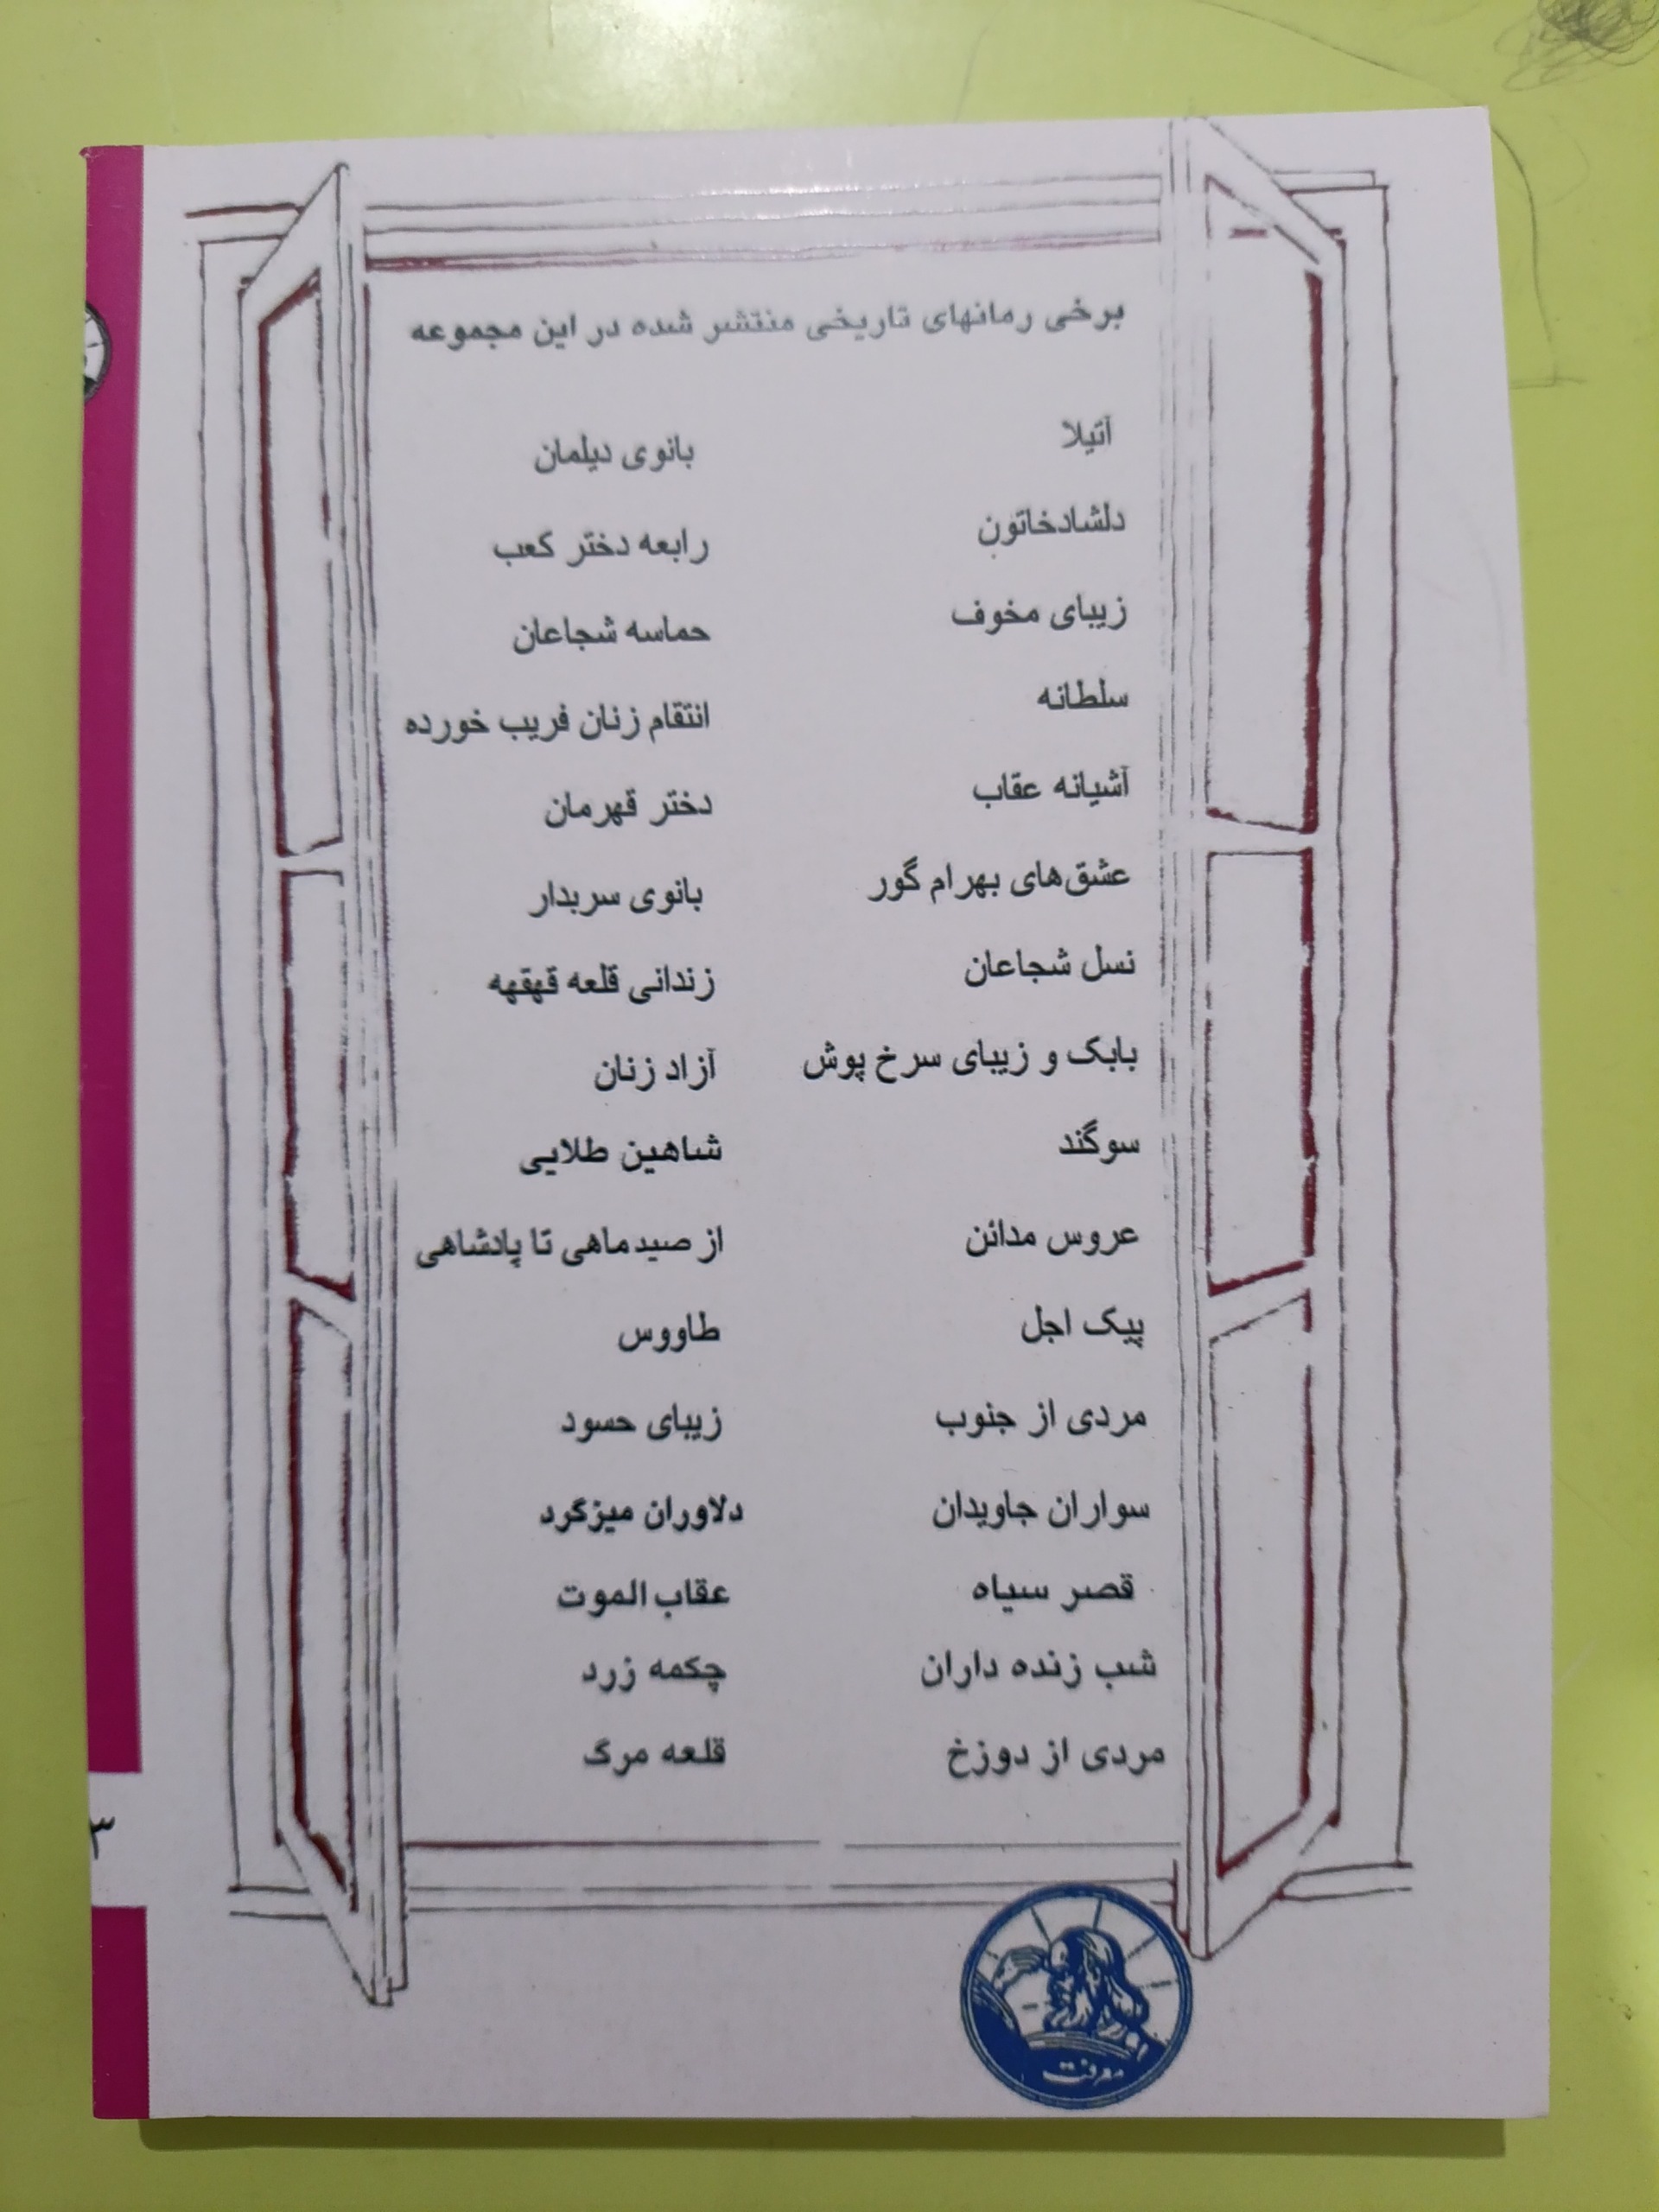 برخی رمانهای تاریخی منتشر شده در این مجموعه
آتیلا
دلشادخاتون
زیبای مخوف
سلطانه
آشیانه عقاب
عشق‌های بهرام گور
نسل شجاعان
بابک و زیبای سرخ پوش
سوگند
عروس مدائن
پیک اجل
مردی از جنوب
سواران جاویدان
قصر سیاه
شب زنده داران
مردی از دوزخ
بانوی دیلمان
رابعه دختر کعب
حماسه شجاعان
انتقام زنان فریب خورده
دختر قهرمان
بانوی سربدار
زندانی قلعه قهقهه
آزاد زنان
شاهین طلایی
از صید ماهی تا پادشاهی
طاووس
زیبای حسود
دلاوران میزگرد
عقاب الموت
چکمه زرد
قلعه مرگ
معرفت
۳